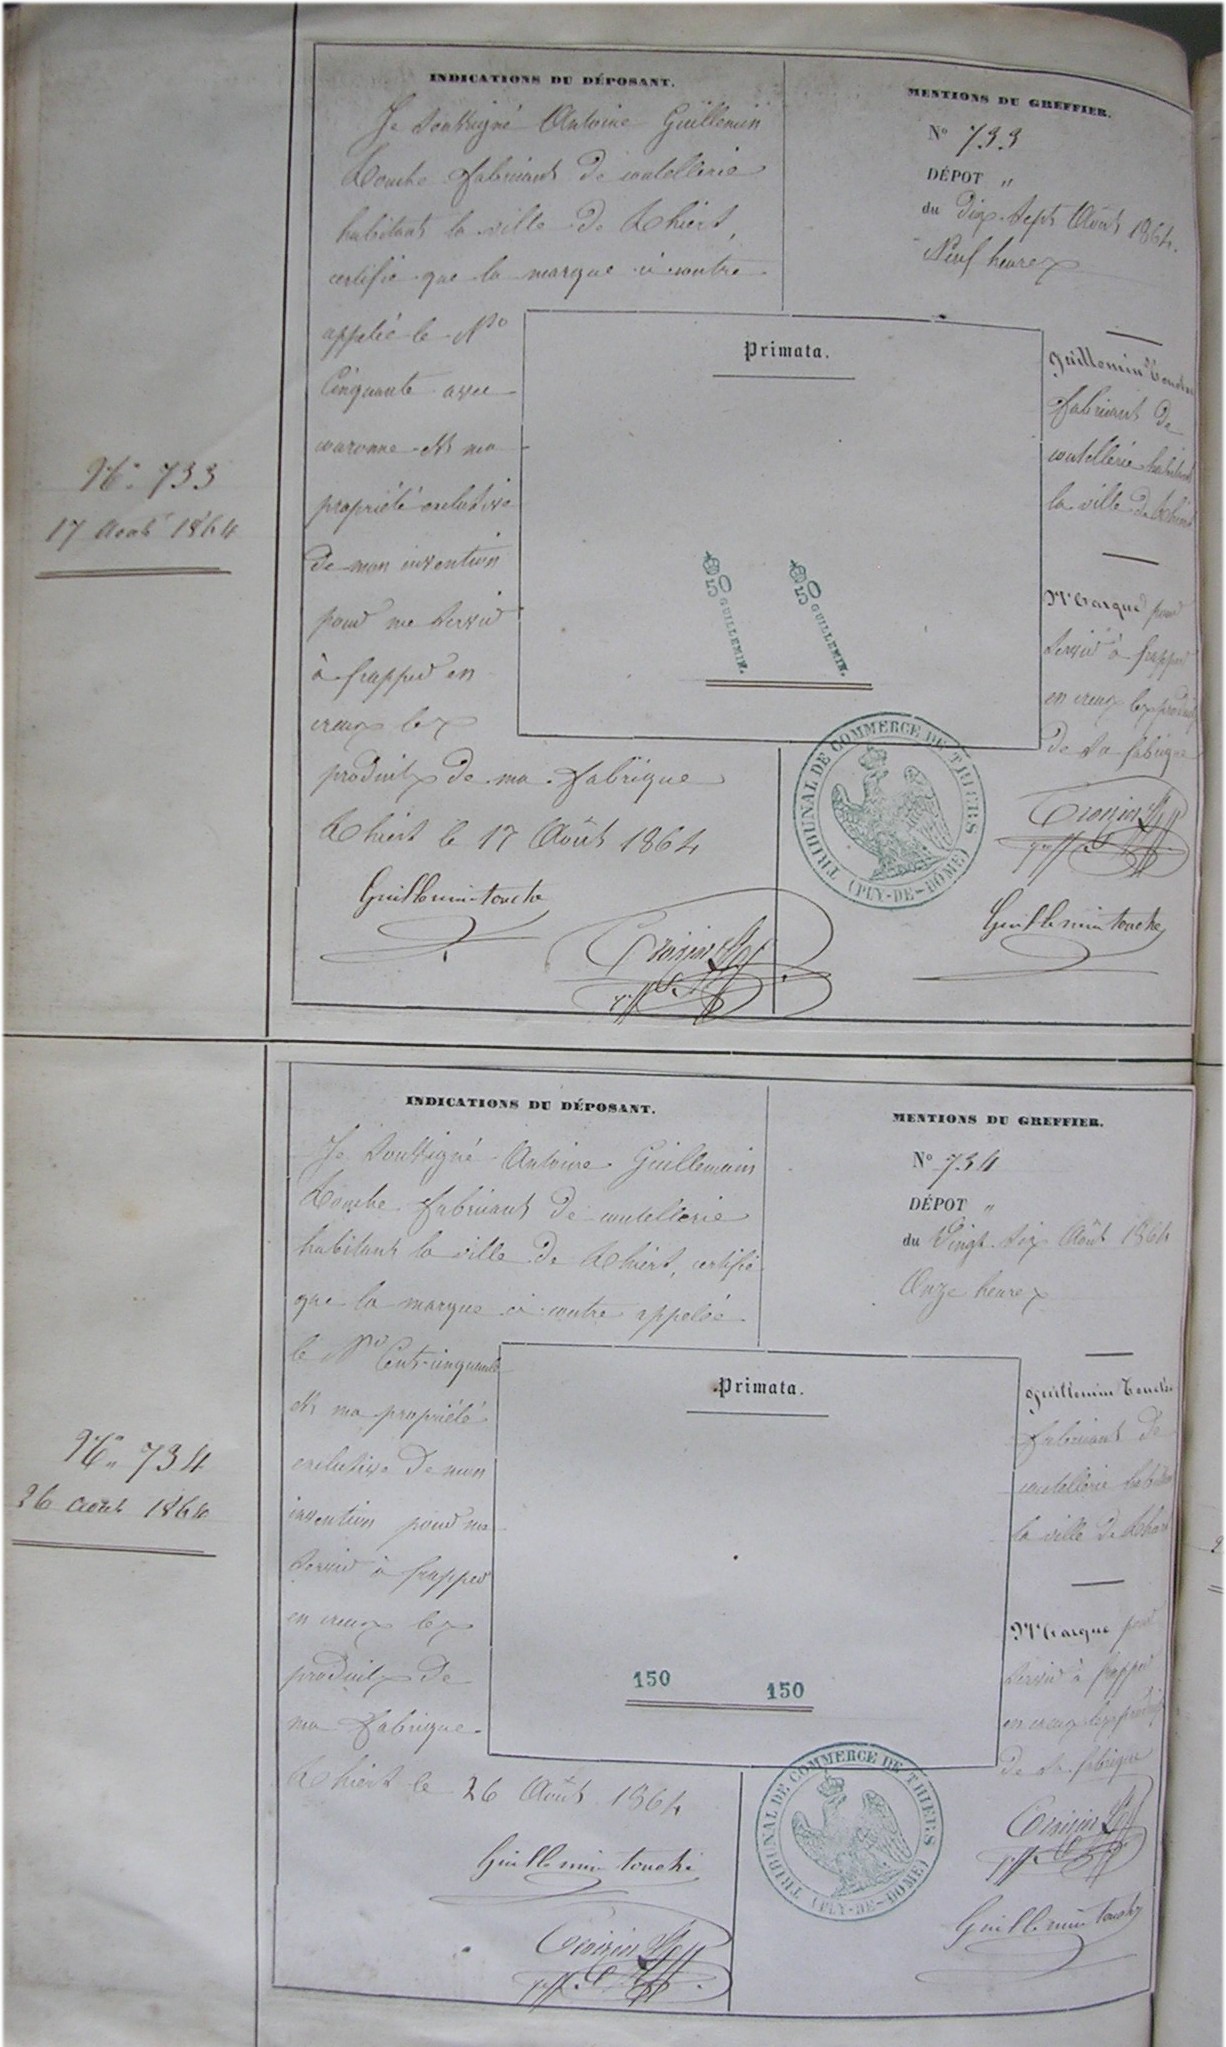 N° 733
17 Août 1864
INDICATIONS DU DÉPOSANT.
Je soussigné Antoine Guillemin
Touche fabricant de coutellerie
habitant la ville de Thiers,
certifie que la marque ci contre
appelée le N°
Cinquante avec
couronne est ma
propriété exclusive
de mon invention
pour me servir
à frapper en
creux les
produits de ma fabrique
Thiers le 17 Août 1864
Guillemin-touche
MENTIONS DU GREFFIER.
N° 733
DÉPOT "
du Dix Sept Août 1864.
Neuf heures
Primata.
50 GUILLEMIN.
50 GUILLEMIN.
Guillemin Touche
fabricant de
coutellerie habitant
la ville de Thiers
Marque pour
servir à frapper
en creux les produits
de sa fabrique
TRIBUNAL DE COMMERCE DE THIERS
(PUY-DE-DÔME)
Guillemin touche
N° 734
26 Août 1864
INDICATIONS DU DÉPOSANT.
Je soussigné Antoine Guillemin
Touche fabricant de coutellerie
habitant la ville de Thiers, certifie
que la marque ci contre appelée
le N° Cent-cinquante
est ma propriété
exclusive de mon
invention pour me
servir à frapper
en creux les
produits de
ma fabrique.
Thiers le 26 Août 1864
Guillemin touche
MENTIONS DU GREFFIER.
N° 734
DÉPOT "
du Vingt Six Août 1864
Onze heures
Primata.
150
150
Guillemin Touche
fabricant de
coutellerie habitant
la ville de Thiers
Marque pour
servir à frapper
en creux les produits
de sa fabrique
TRIBUNAL DE COMMERCE DE THIERS
(PUY-DE-DÔME)
Guillemin touche